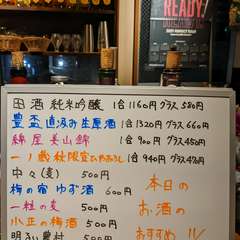 READY
田酒 純米吟醸 1合1160円 グラス580円
豊盃 直汲み生原酒 1合1320円 グラス660円
綿屋 美山錦 1合900円 グラス450円
一ノ蔵 秋限定ひやおろし 1合940円 470円
中々(麦) 500円
梅の宿 ゆず酒 600円
小正の梅酒 500円
明るい農村 500円
本日の
お酒の
おすすめ!!